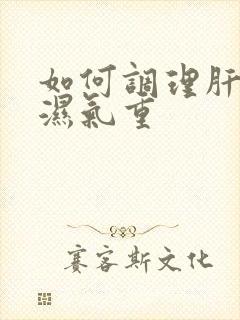 如何調理肝
濕氣重
賽客斯文化